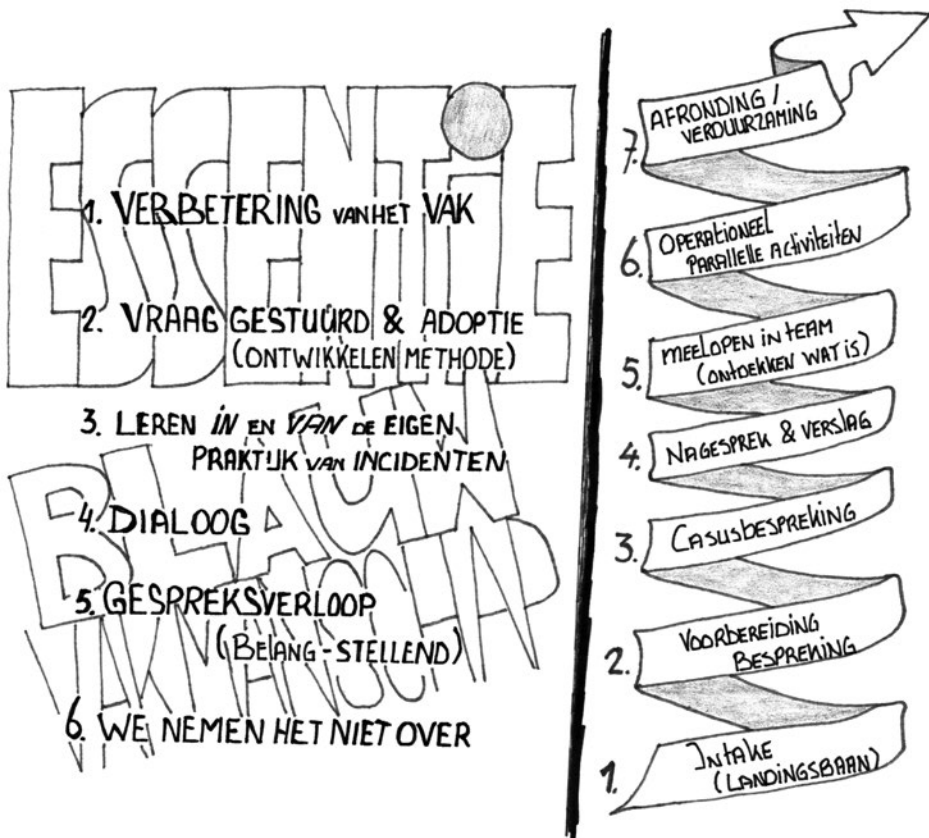 ESSENTiE
1. VERBETERING VAN HET VAK
2. VRAAG GESTUÚRD & ADOPTIE
(ONTWIKKELEN METHODE)
3. LEREN IN EN VAN DE EIGEN
PRAKTIJK VAN INCIDENTEN
BLAUW
4. DIALOOG
VAKMANSCHAP
5. GESPREKSVERLOOP
(BELANG-STELLEND)
6. WE NEMEN HET NIET OVER
7. AFRONDING /
VERDUURZAMING
6. OPERATIONEEL
PARALLELLE ACTIVITEITEN
5. MEELOPEN IN TEAM
(ONTDEKKEN WAT IS)
4. NAGESPREK & VERSLAG
3. CASUSBESPREKING
2. VOORBEREIDING
BESPREKING
1. INTAKE
(LANDINGSBAAN)